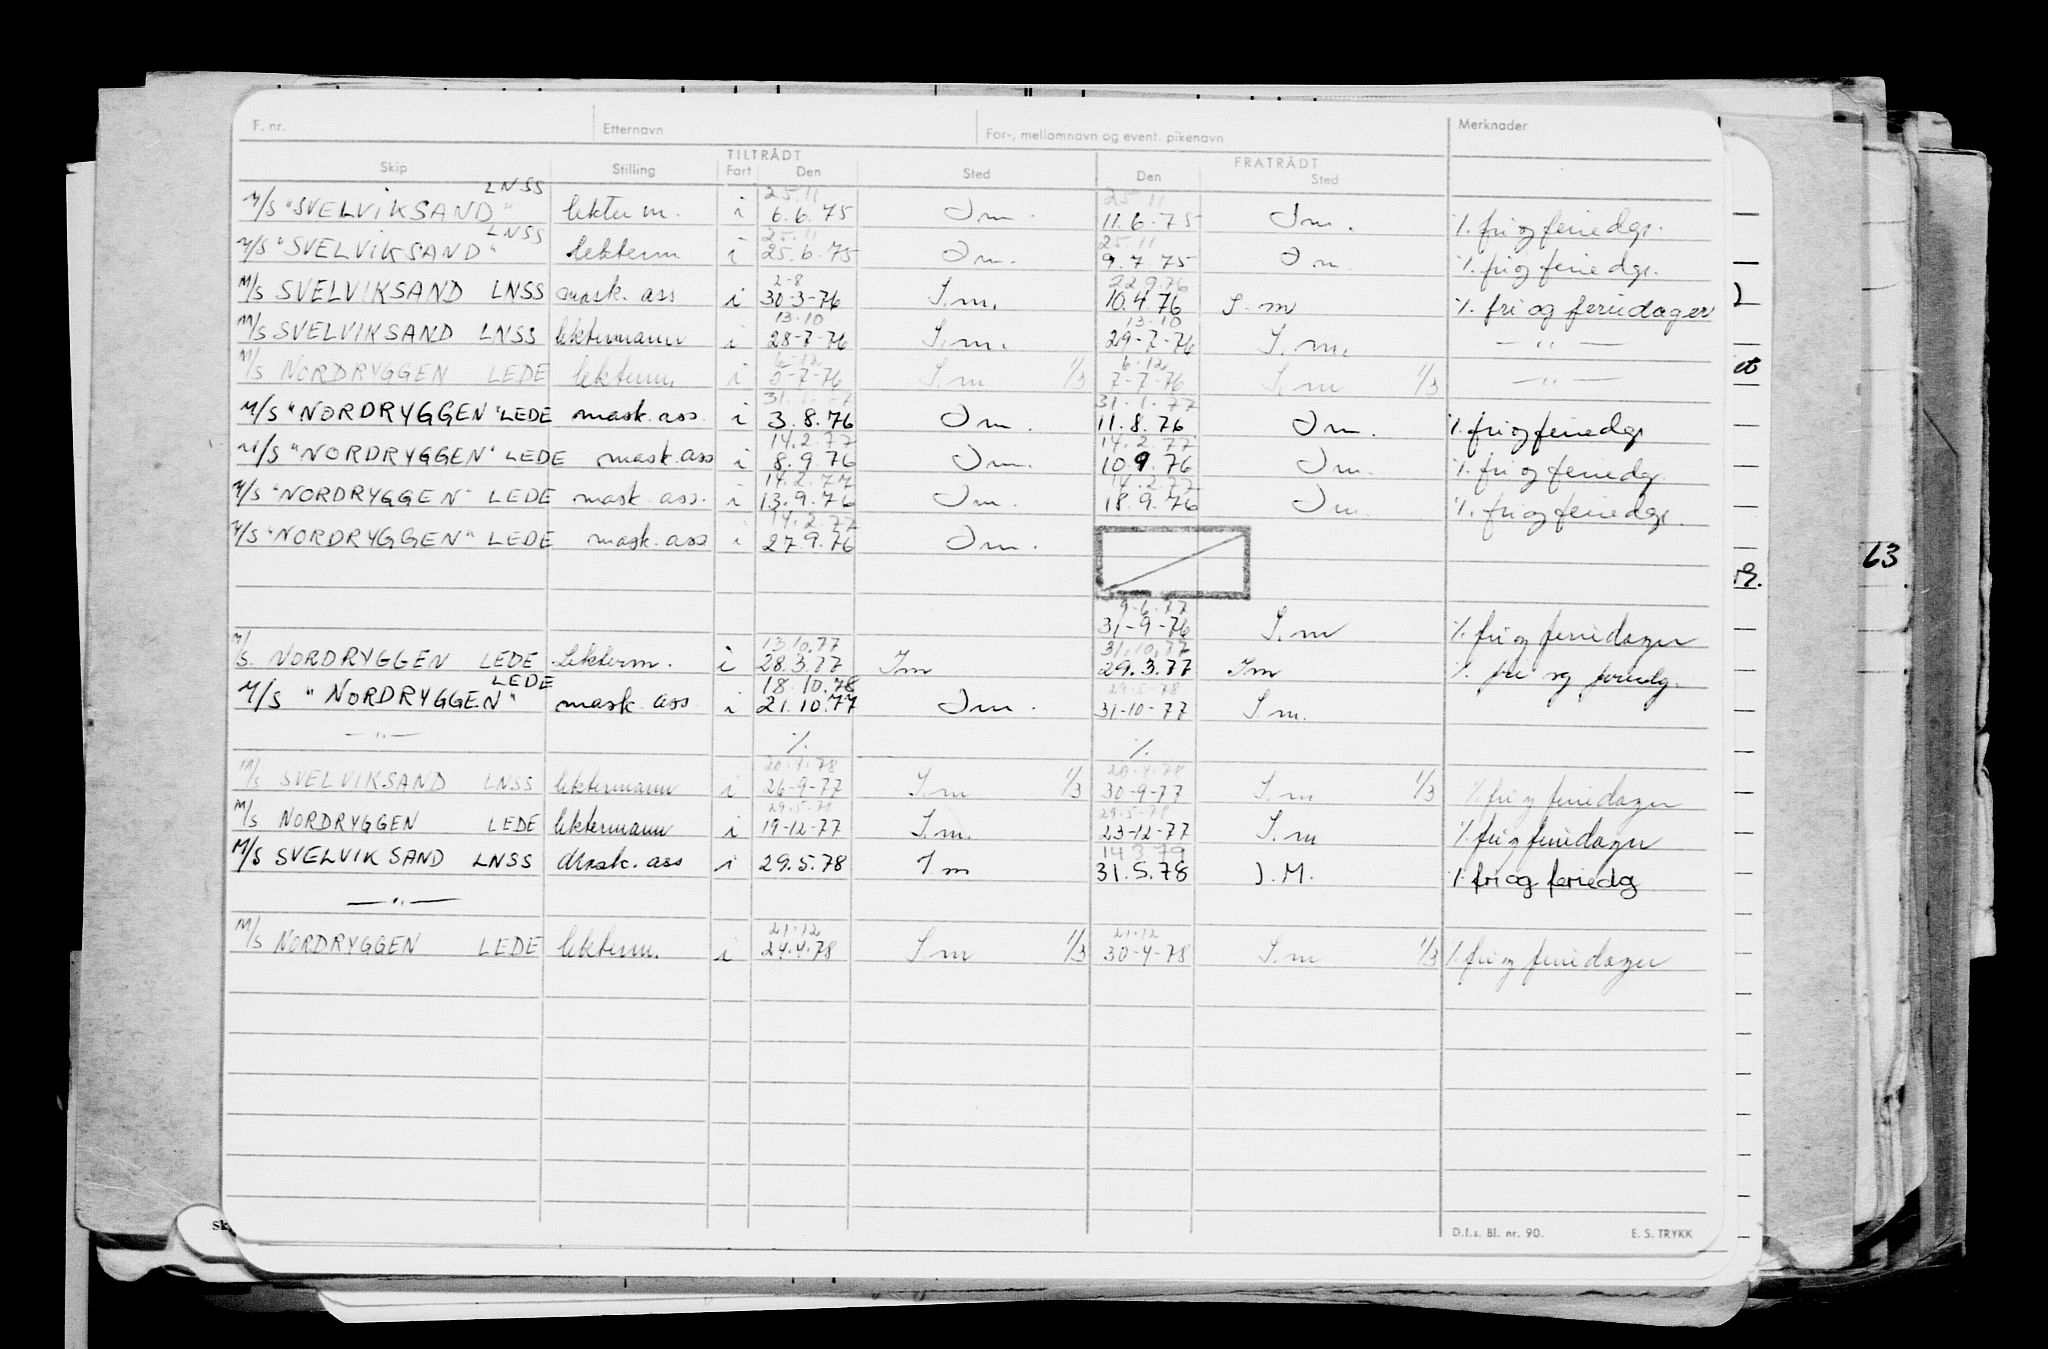 F. nr. Etternavn For-, mellomnavn og event. pikenavn Merknader
TILTRÅDT FRATRÅDT
Skip Stilling Fart Den Sted Den Sted
LNSS 25.11 25.11
M/S "SVELVIKSAND" lekterm. i 6.6.75 Im. 11.6.75 Im. %. fri og feriedgr.
LNSS 25.11 25.11
M/S "SVELVIKSAND" lekterm i 25.6.75 Im. 9.7.75 Im. %. fri og feriedgr.
2-8 22.9.76
M/S SVELVIKSAND LNSS mask. ass i 30-3-76 I.m. 10.4.76 I.m %. fri og feriedager
13-10 13-10
M/S SVELVIKSAND LNSS lektermann i 28-7-76 I.m. 29-7-76 I.m. -"-
6-12 6-12
M/S NORDRYGGEN LEDE lekterm. i -7-76 I.m 1/3 7-7-76 I.m 1/3 -"-
31.1.77 31.1.77
M/S "NORDRYGGEN" LEDE mask. ass. i 3.8.76 Im. 11.8.76 Im. %. fri og feriedgr
14.2.77 14.2.77
M/S "NORDRYGGEN" LEDE mask. ass i 8.9.76 Im. 10.9.76 Im. %. fri og feriedgr.
14.2.77 14.2.77
M/S "NORDRYGGEN" LEDE mask. ass. i 13.9.76 Im. 18.9.76 Im. %. fri og feriedgr.
14.2.77
M/S "NORDRYGGEN" LEDE mask. ass i 27.9.76 Im.
9-6-77
31-9-76 I.m %. fri og feriedager
13.10.77 31.10.77
M/S. NORDRYGGEN LEDE Lekterm. i 28.3.77 Im 29.3.77 Im %. fri og feriedg.
LEDE 18.10.78 29-5-78
M/S "NORDRYGGEN" mask. ass. i 21.10.77 Im. 31-10-77 I.m.
-"- %. %.
20.4.78 20.4.78
M/S SVELVIKSAND LNSS lektermann i 26-9-77 I.m 1/3 30-9-77 I.m 1/3 %. fri og feriedager
29.5.78 29.5.78
M/S NORDRYGGEN LEDE lektermann i 19-12-77 I.m. 23-12-77 I.m %. fri og feriedager
14.3.79
M/S SVELVIKSAND LNSS Mask. ass i 29.5.78 I m 31.5.78 I.M. %. fri og feriedg
-"-
21.12 21.12
M/S NORDRYGGEN LEDE lekterm. i 24.4.78 I.m 1/3 30-4-78 I.m 1/3 %. fri og feriedager
63
D.f.s. Bl. nr. 90. E. S. TRYKK